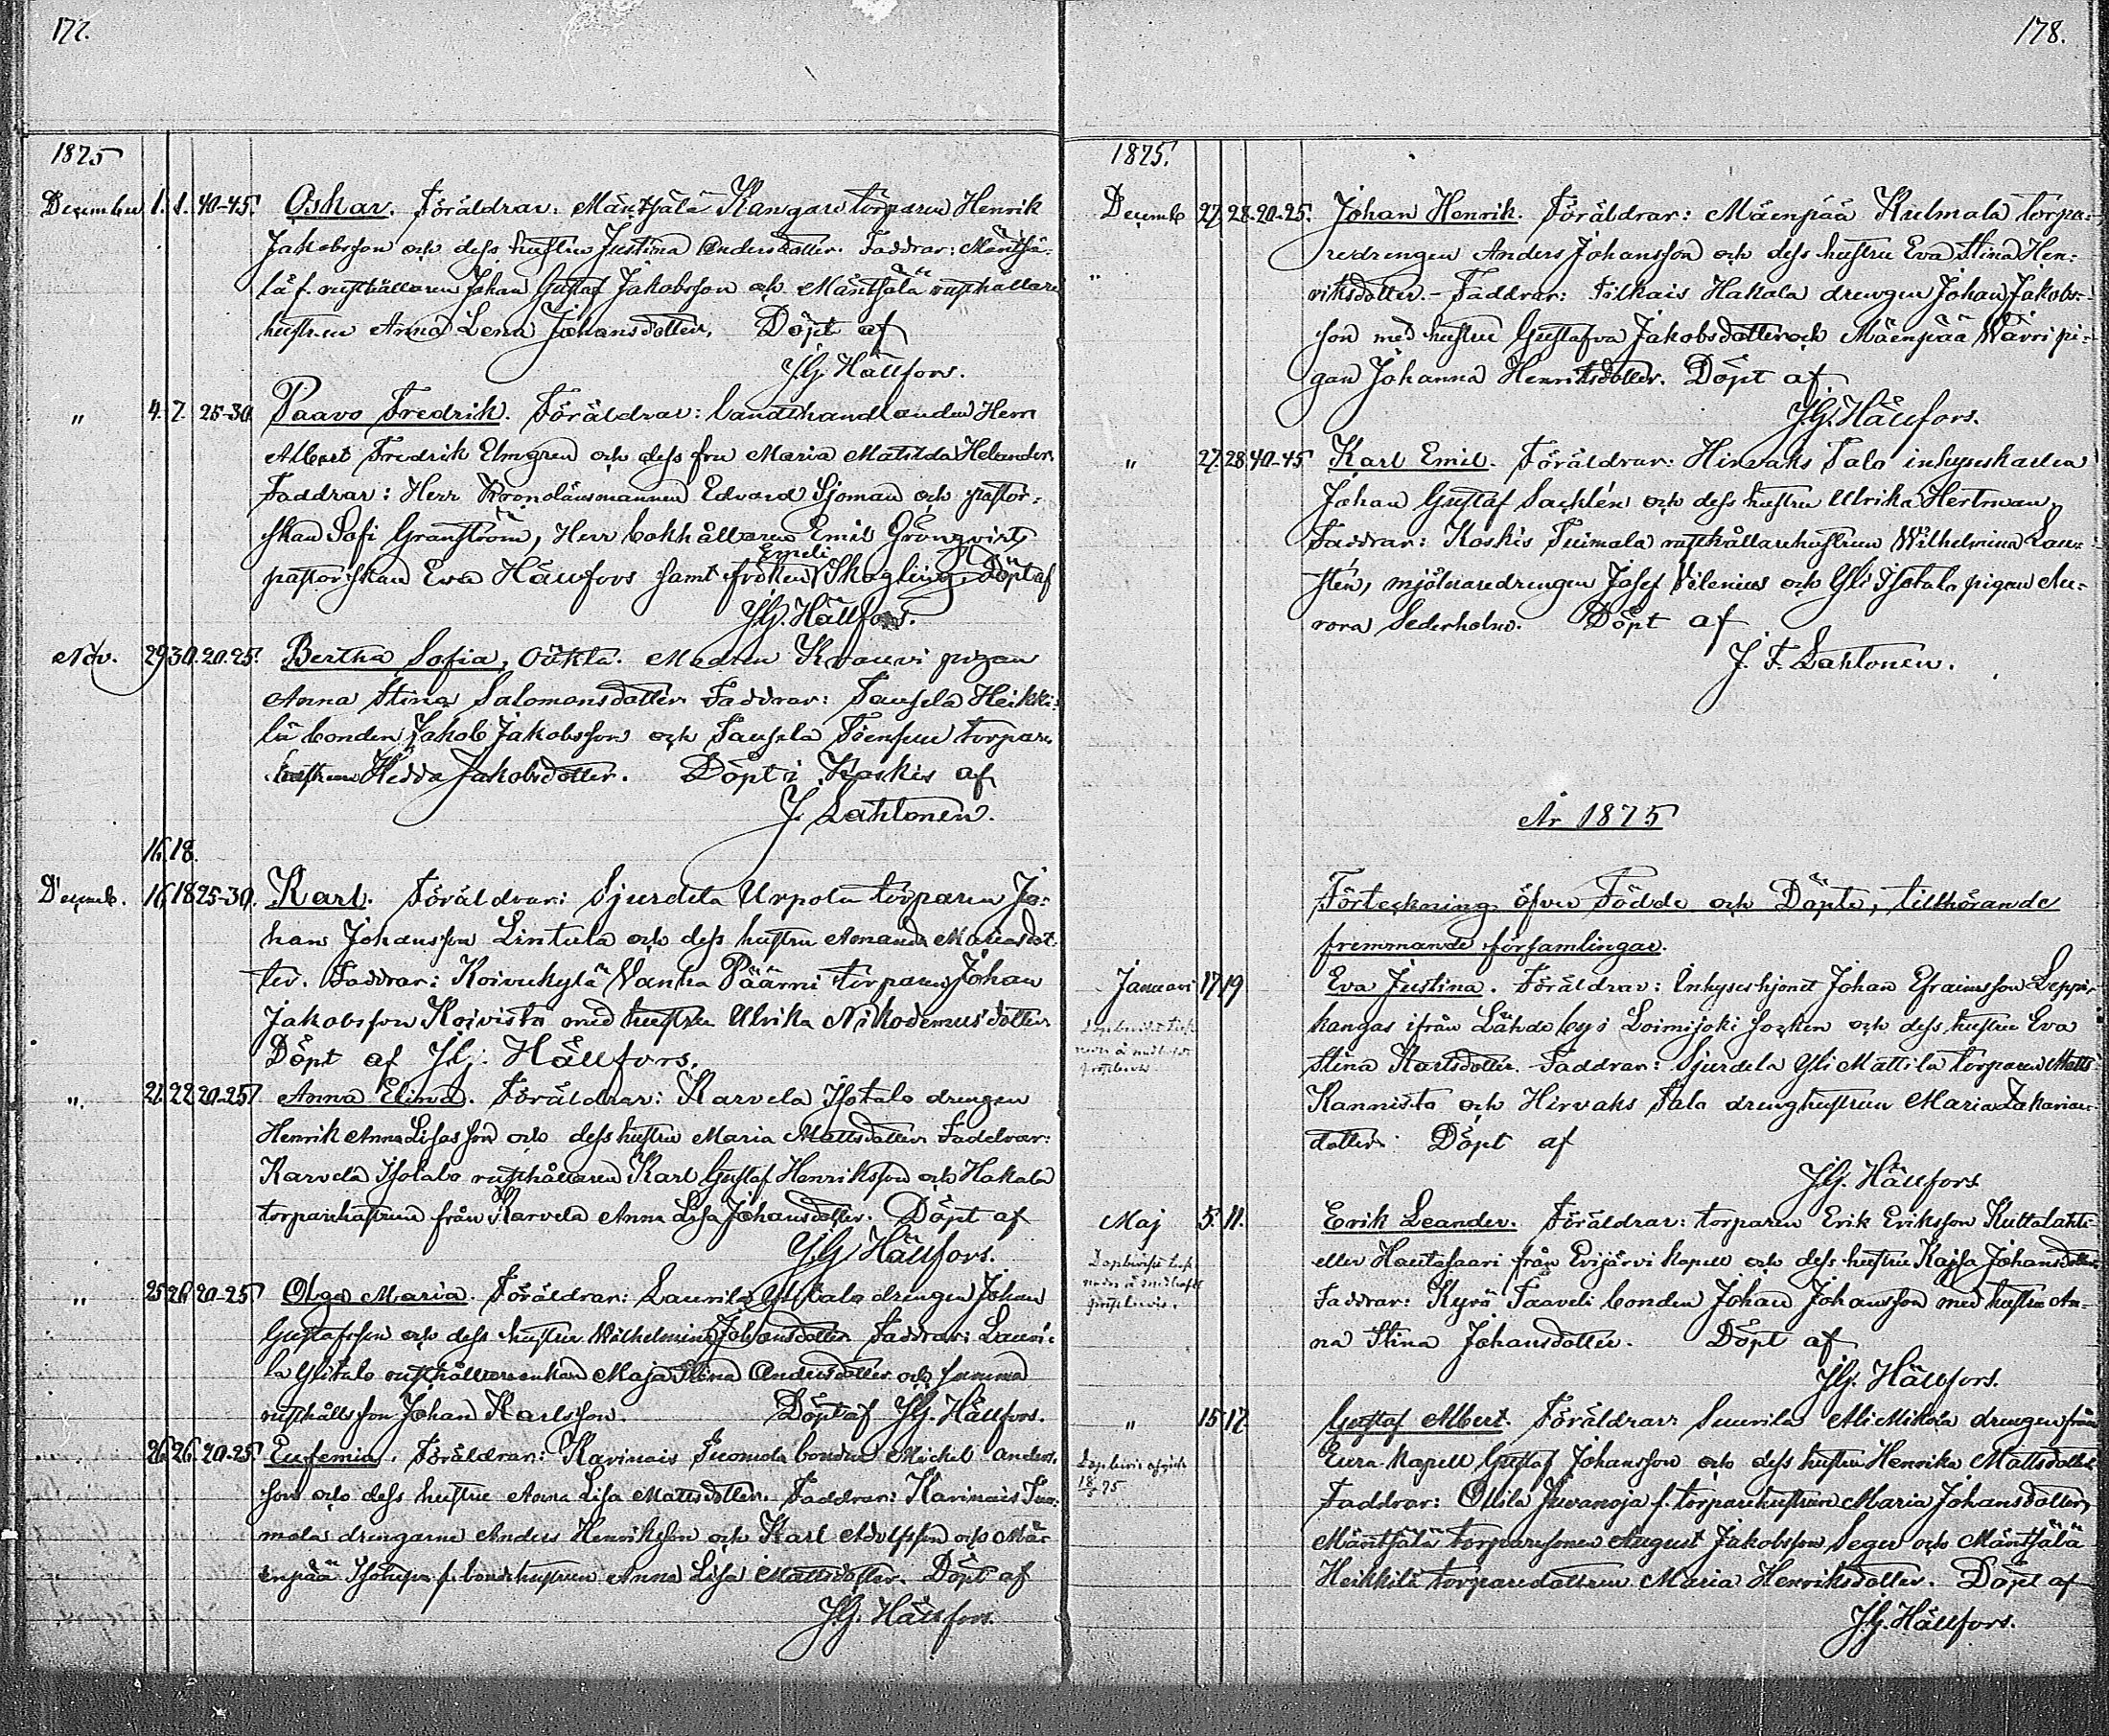 177.
1875
December 1. 1. 40-45. Oskar. Föräldrar: Mäntsälä Kangare torparen Henrik
Jakobsson och dess hustru Justina Andersdotter. Faddrar: Mäntsä-
lä f. rusthållaren Johan Gustaf Jakobsson och Mäntsälä rusthållare
hustrun Anna Lena Johansdotter. Döpt af
J.G. Hällfors.
" 4. 7. 25-30 Paavo Fredrik. Föräldrar: landthandlanden Herr
Albert Fredrik Elmgren och dess fru Maria Matilda Helander.
Faddrar: Herr Kronolänsmannen Edvard Sjöman och pastor-
skan Sofi Granström, Herr bokhållaren Emil Grönqvist,
pastorskan Eva Hällfors samt fröken Emeli Skogling, Döpt af
J.G. Hällfors.
Nov. 29 30. 20-25. Bertha Sofia, Oäkta. Modren Krauvi pigan
Anna Stina Salomonsdotter. Faddrar: Sauhela Heikki-
lä bonden Jakob Jakobsson och torpare
hustrun Hedda Jakobsdotter. Döpt i Koskis af
J. Lahtonen.
16. 18.
Decemb. 16. 18 25-30. Karl. Föräldrar: Sjurdela Urpola torparen Jo-
han Johansson Lintula och dess hustru Amanda Mariasdot-
ter. Faddrar: Koivukylä Vanha Päärni torparen Johan
Jakobsson Koivisto med hustru Ulrika Nikodemusdotter
Döpt af J.G. Hällfors.
" 21. 22 20-25 Anna Elina. Föräldrar: Karvela Isotalo drengen
Henrik Anna Lisasson och dess hustru Maria Mattsdotter. Faddrar:
Karvela Isotalo rusthållaren Karl Gustaf Henriksson och Hakala
torparehustrun från Karvela Anna Lisa Johansdotter. Döpt af
J.G Hällfors.
" 25 26 20-25 Olga Maria. Föräldrar: Laurila Ylitalo drengen Johan
Gustafsson och dess hustru Wilhelmina Johansdotter. Faddrar: Lauri-
la Ylitalo rusthållareenkan Maja Stina Andersdotter och samma
rusthålls son Johan Karlsson. Döpt af J.G. Hällfors.
26. 26. 20-25. Eufemia. Föräldrar: Karinais Tuomola bonden Mickel Anders-
son och dess hustru Anna Lisa Mattsdotter. Faddrar: Karinais Tuo-
mola drengarne Anders Henriksson och Karl Adolfsson och Mä-
enpää f. bondehustrun Anna Lisa Mattsdotter. Döpt af
J.G. Hällfors.
178.
1875.
Decemb 27. 28. 20-25. Johan Henrik. Föräldrar: Mäenpää Kulmala torpa-
" redrengen Anders Johansson och dess hustru Eva Stina Hen-
riksdotter. - Faddrar: Hakala drengen Johan Jakobs-
son med hustru Gustafva Jakobsdotter och Mäenpää Wävri pi-
gan Johanna Henriksdotter. Döpt af
J.G. Hällfors.
" 27. 28 40-45 Karl Emil. Föräldrar: Hirvaks Talo inhyseskarlen
Johan Gustaf Sachlén och dess hustru Ulrika Hertman.
Faddrar: Koskis Tuimala rusthållarehustrun Wilhelmina Lau-
stén, mjölnaredrengen Josef Vilenius och Yli Isotalo pigan Au-
rora Sederholm. Döpt af
J. F. Lahtonen.
År 1875
Förteckning öfver Födde och Döpte, tillhörande
fremmande församlingar.
Januari 17 19 Eva Justina. Föräldrar: Inhyseshjonet Johan Efraimsson Leppä-
kangas ifrån Lähde by i Loimijoki socken och dess hustru Eva
Stina Karlsdotter. Faddrar: Sjurdela Yli Mattila torparen Matts
Kannisto och Hirvaks Talo drenghustrun Maria Zakarias-
dotter. Döpt af
J.G. Hällfors
Maj 5. 11. Erik Leander. Föräldrar: torparen Erik Eriksson Kuttalahti
eller Hautasaari från Evijärvi kapell och dess hustru Kajsa Johansdotter
Faddrar: Kyrö Taaveli bonden Johan Johansson med hustru An-
na Stina Johansdotter. Döpt af
J.G. Hällfors.
" 15 17. Gustaf Albert. Föräldrar: Suurila Ali Mikola drengen från
Eura Kapell Gustaf Johansson och dess hustru Henrika Mattsdotter
Faddrar: Ollila Juvanoja f. torparehustrun Maria Johansdotter,
Mäntsälä torparesonen August Jakobsson Seger och Mäntsälä
Heikkilä torparedottren Maria Henriksdotter. Döpt af
J.G. Hällfors.